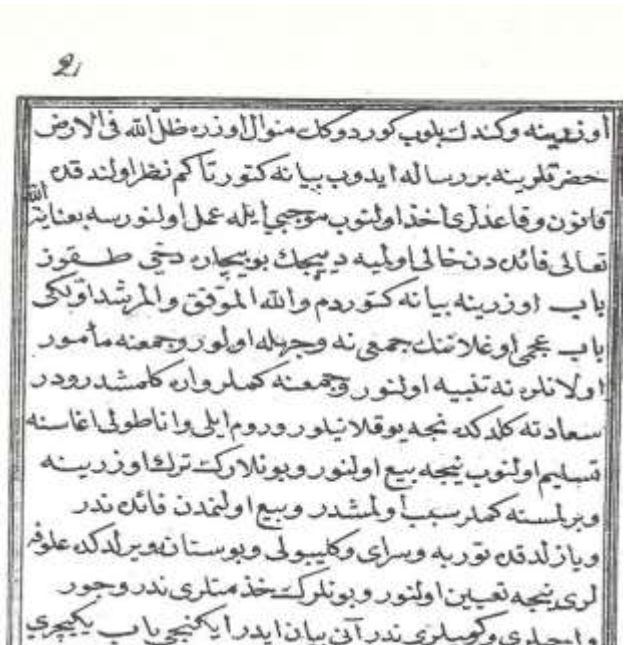 2
اوزرینه وکندك بلوب کوردوکك منوال اوزره ظل الله فی الارض
حضرتلرینه بر رساله ایدوب بیانه کتور تا کم نظر اولندقده
قانون وقاعدلری اخذ اولنوب موجبی ایله عمل اولنورسه بعنایة الله
تعالی فائده دن خالی اولمیه دییجك بو بیچاره دخی طقوز
باب اوزرینه بیانه کتوردم والله الموفق والمرشد اولکی
باب عجمی اوغلاننك جمعی نه وجهله اولور وجمعنه مأمور
اولانلره نه تنبیه اولنور وجمعنه کملر واره کلمشدر ودر
سعادته کلدکده نجه یوقلانیلور وروم ایلی واناطولی اغاسنه
تسلیم اولنوب نیجه بیع اولنور وبونلارك ترك اوزرینه
ویرلمسنه کملر سبب اولمشدر وبیع اولنمدن فائده ندر
ویازلدقده توربه وسرای وکلیبولی وبوستانه ویرلدکده علوفه
لری نیجه تعیین اولنور وبونلرك خدمتلری ندر وجور
واجیلری وکمیلری ندر آنی بیان ایدر ایکنجی باب یکیچری